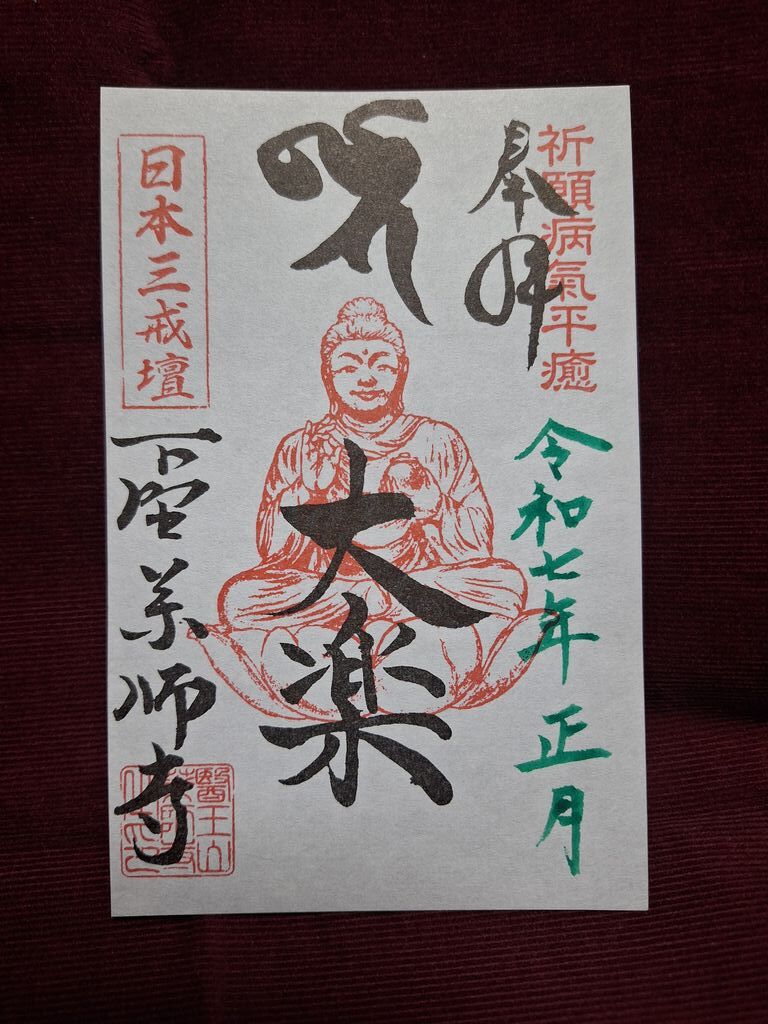 祈願病氣平癒
奉拝
令和七年 正月
大楽
日本三戒壇
下野薬師寺
醫王山